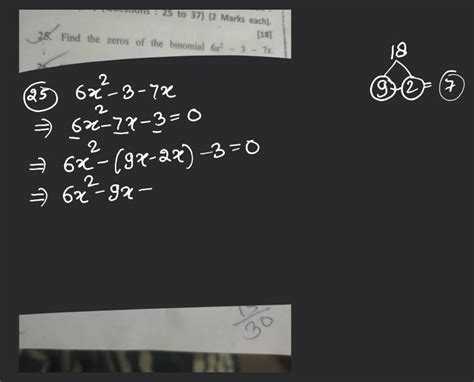 (Questions : 25 to 37) (2 Marks each).
[18]
25. Find the zeros of the binomial 6x² - 3 - 7x.
(25) 6x² - 3 - 7x
⇒ 6x² - 7x - 3 = 0
⇒ 6x² - (9x - 2x) - 3 = 0
⇒ 6x² - 9x -
18
9 - 2 = 7
30